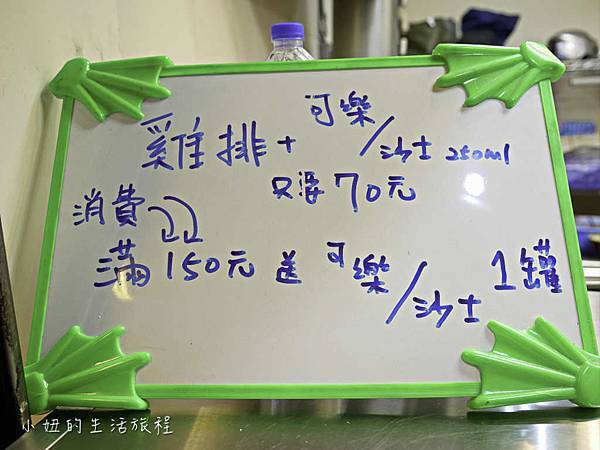 雞排+可樂/沙士 250ml
只要70元
消費
滿150元送可樂/沙士1罐
小妞的生活旅程